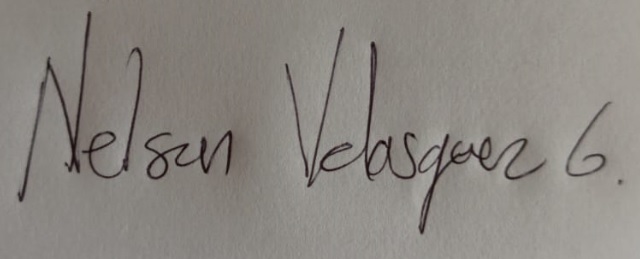 Nelson Velasquez G.